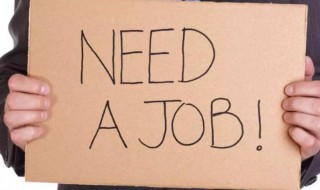 NEED
A JOB!